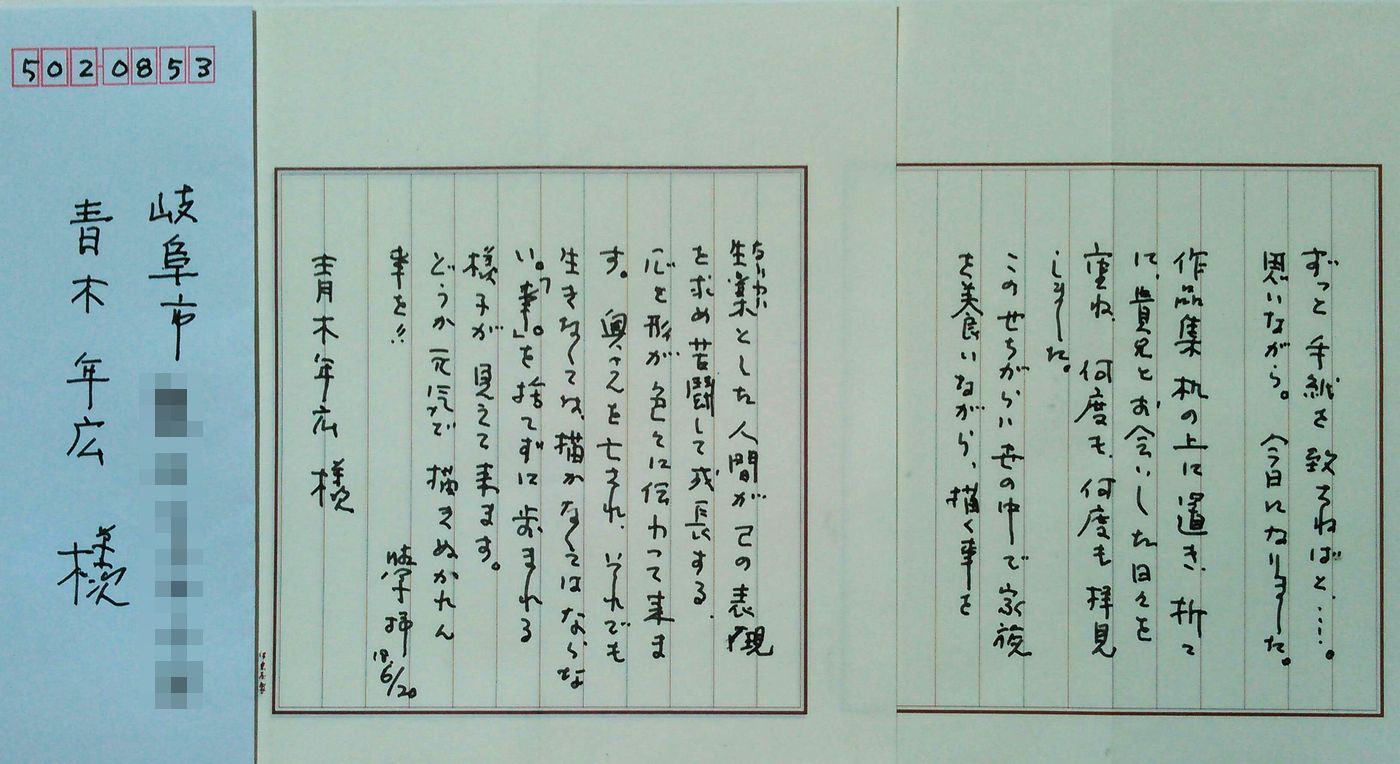 ずっと手紙を致さねばと……。
思いながら。今日になりました。
作品集 机の上に置き、折々
に、貴兄とお会いした日々を
重ね、何度も、何度も拝見
しました。
このせちがらい世の中で家族
を養いながら、描く事を
なりわい
生業とした人間が己の表現
を求め苦闘して成長する、
心と形が色々に伝わって来ま
す。奥さんを亡され、それでも
生きなくては、描かなくてはならな
い。「事」。を捨てずに歩まれる
様子が見えて来ます。
どうか元気で描きぬかれん
事を!!
拝
18. 6/20
青木年広 様
502-0853
岐阜市
青木 年広 様